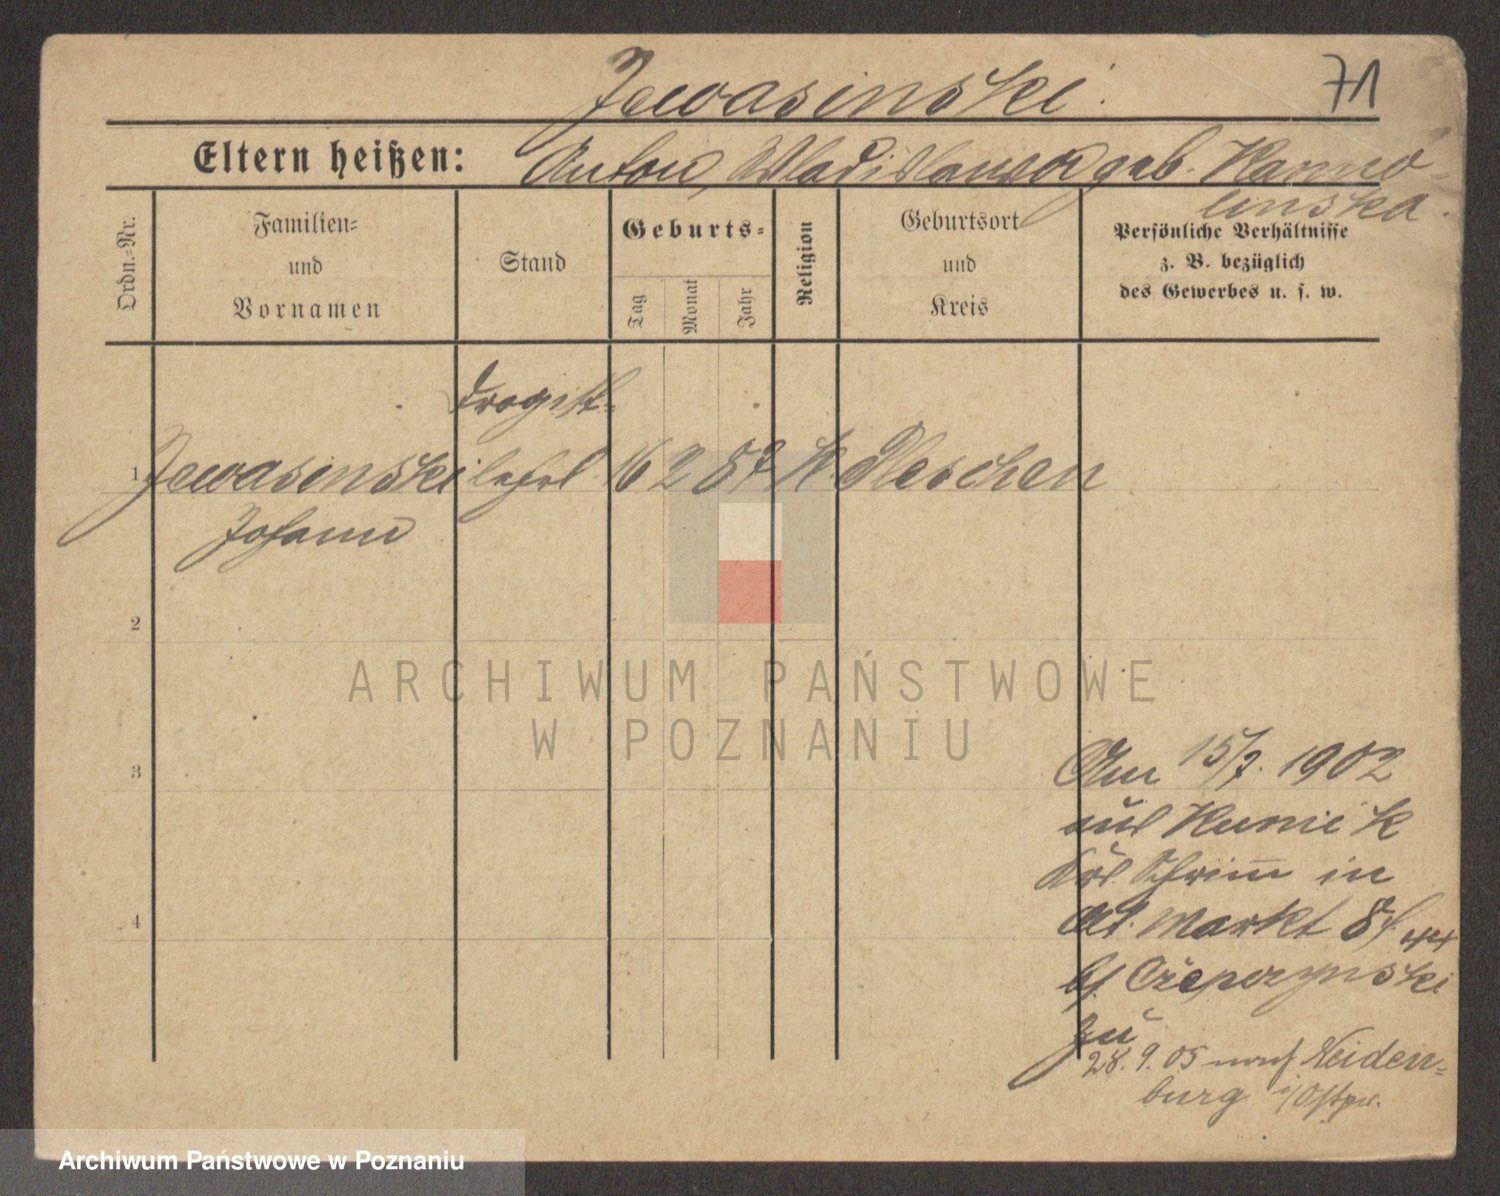 Jewasinski.
71
Eltern heißen:
Anton, Wladislawa geb. Kamo-
linska.
Ordn.-Nr.
Familien-
und
Vornamen
Stand
Geburts-
Tag
Monat
Jahr
Religion
Geburtsort
und
Kreis
Persönliche Verhältnisse
z. B. bezüglich
des Gewerbes u. s. w.
Drogist-
1 Jewasinski lehrl. 16 2 87 K. Pleschen
Johann
2
3
4
ARCHIWUM PAŃSTWOWE
W POZNANIU
Am 15/7. 1902
aus Kunik
Krs. Schrimm in
Alt. Markt 8
bf. Czepczynski
zu
28. 9. 05 nach Neiden-
burg i/Ostpr.
Archiwum Państwowe w Poznaniu